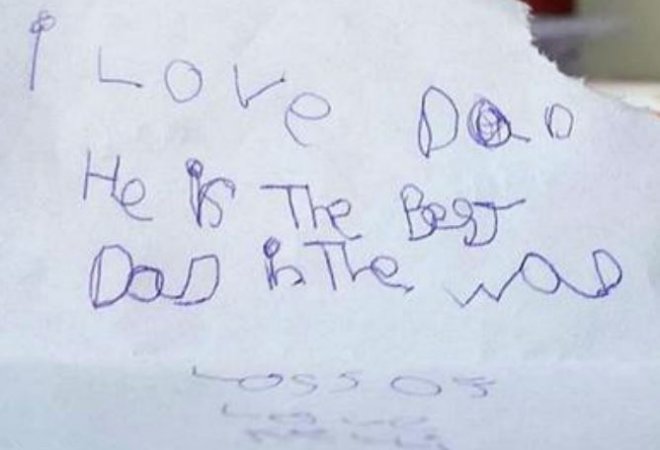 i Love Dad
He is The Best
Dad in The wad
Loss os